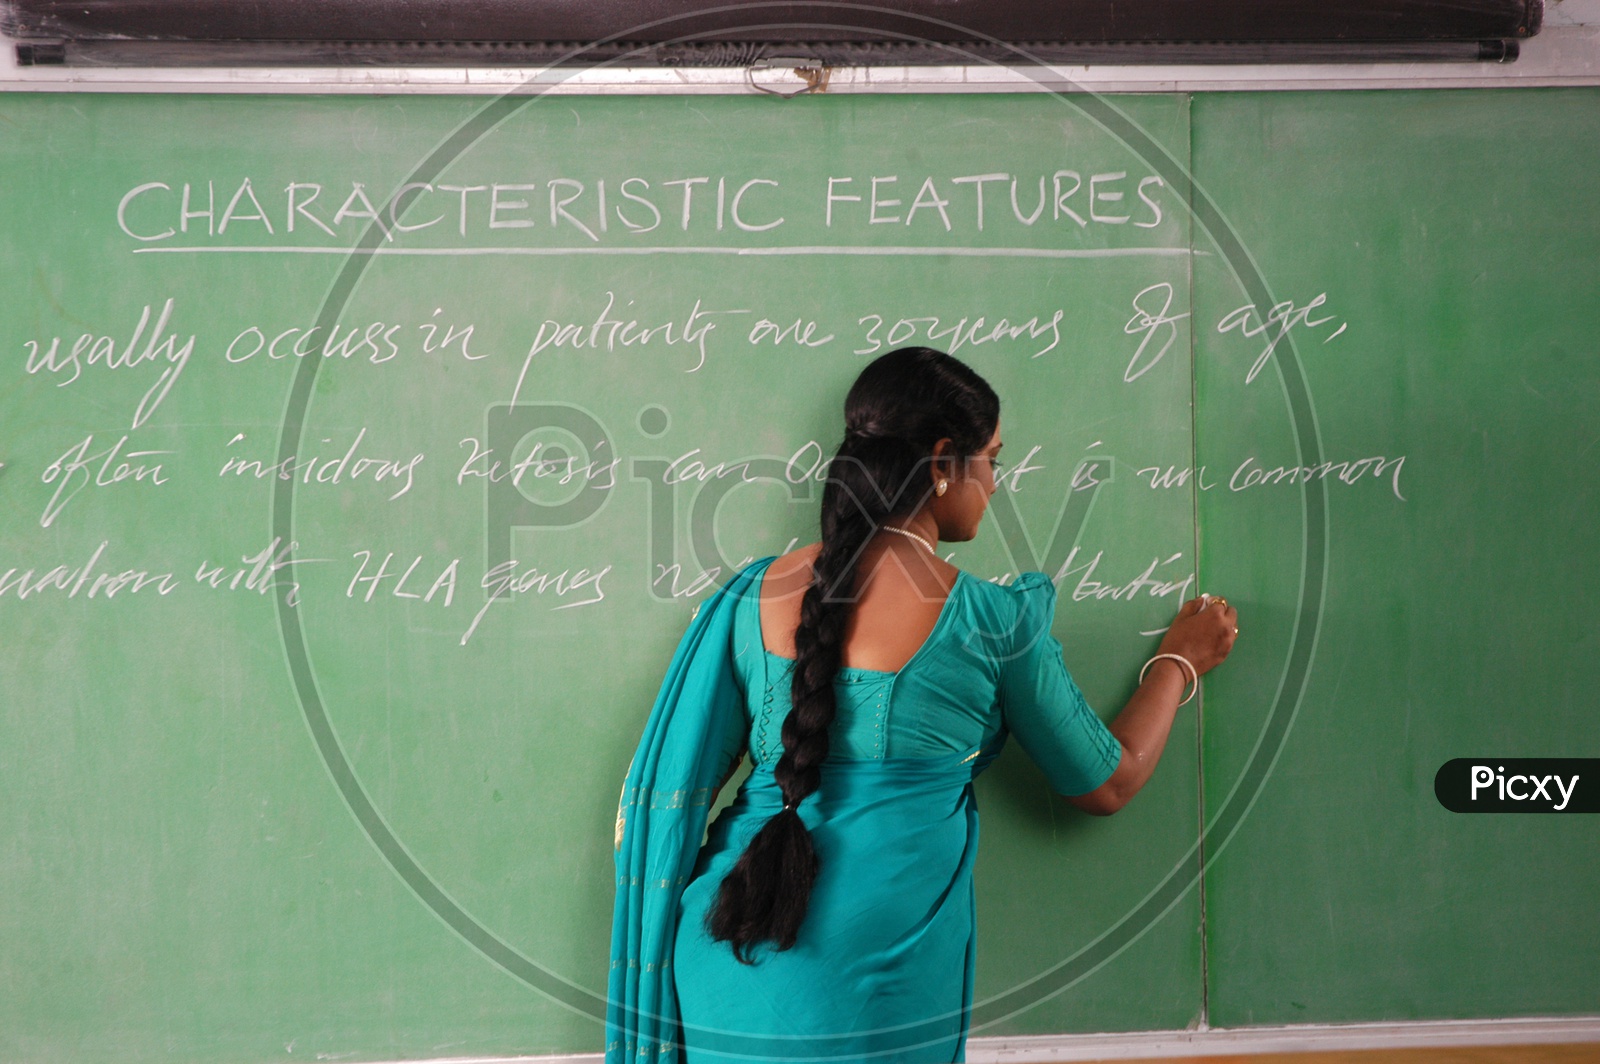 CHARACTERISTIC FEATURES
usally occurs in patients one 30 years of age,
often insidous Ketosis can is uncommon
with HLA genes
Picxy
Picxy